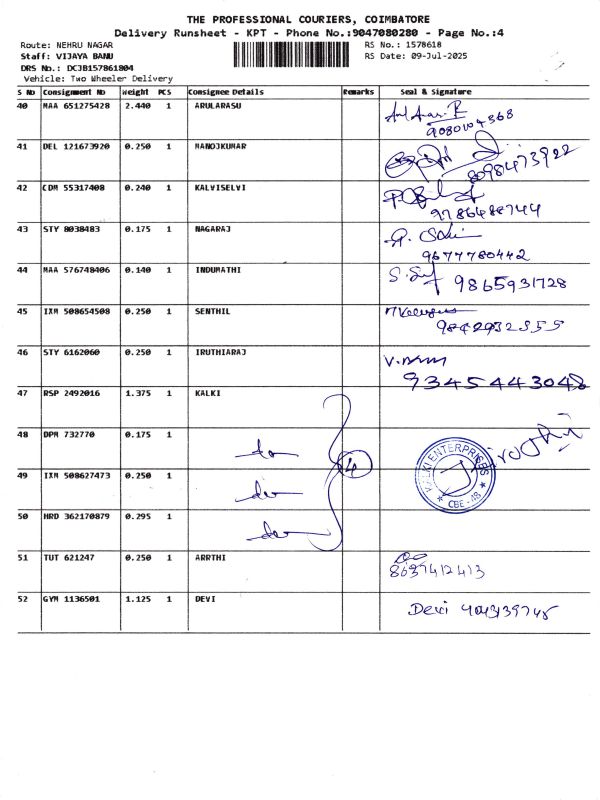 THE PROFESSIONAL COURIERS, COIMBATORE
Delivery Runsheet - KPT - Phone No.:9047080280 - Page No.:4
Route: NEHRU NAGAR
Staff: VIJAYA BANU
DRS No.: DCJB157861804
Vehicle: Two Wheeler Delivery
RS No.: 1578618
RS Date: 09-Jul-2025
S No Consignment No Weight PCS Consignee Details Remarks Seal & Signature
40 MAA 651275428 2.440 1 ARULARASU
41 DEL 121673920 0.250 1 MANOJKUMAR
8098473922
42 CDM 55317408 0.240 1 KALVISELVI
9786488744
43 STY 8038483 0.175 1 NAGARAJ
9677780442
44 MAA 576748406 0.140 1 INDUMATHI
9865931728
45 IXM 508654508 0.250 1 SENTHIL
46 STY 6162060 0.250 1 IRUTHIARAJ
9345443048
47 RSP 2492016 1.375 1 KALKI
48 DPM 732770 0.175 1
do
4
KALKI ENTERPRISES
CBE - 48
49 IXM 508627473 0.250 1
do
50 HRD 362170879 0.295 1
do
51 TUT 621247 0.250 1 ARRTHI
8637412413
52 GYM 1136501 1.125 1 DEVI
Devi